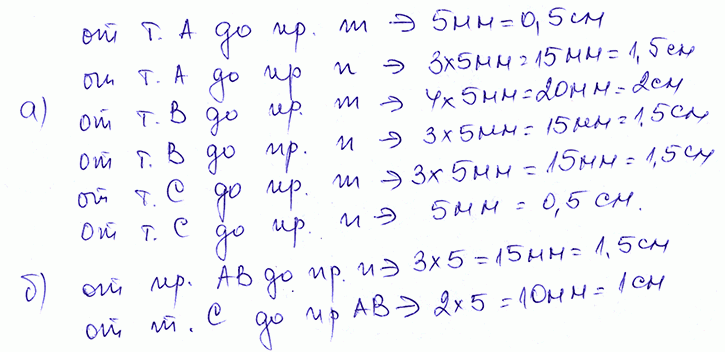 от т. А до пр. m → 5мм = 0,5 см
от т. А до пр n → 3×5мм = 15 мм = 1,5 см
а) от т. В до пр. m → 4×5мм = 20мм = 2см
от т. В до пр. n → 3×5мм = 15мм = 1,5 см
от т. С до пр. m → 3×5мм = 15мм = 1,5 см
от т. С до пр. n → 5мм = 0,5 см.
б) от пр. АВ до пр. n → 3×5 = 15мм = 1,5см
от т. С до пр АВ → 2×5 = 10мм = 1см